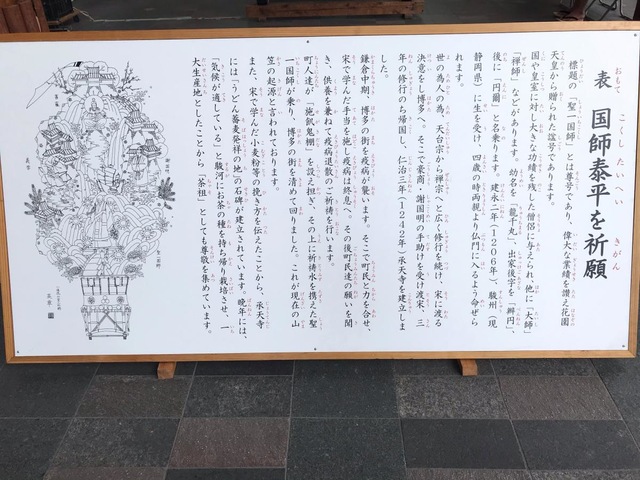 表 国師泰平を祈願
おもて こくし たいへい きがん
標題の「聖一国師」とは尊号であり、偉大な業績を讃え花園
天皇から贈られた諡号であります。
国や皇室に対し大きな功績を残した僧侶に与えられ、他に「大師」
「禅師」などがあります。幼名を「龍千丸」、出家後字を「辨円」、
後に「円爾」と名乗ります。建永二年（1206年）、駿州（現
静岡県）に生を受け、四歳の時両親より仏門に入るよう命ぜら
れます。
世の為人の為、天台宗から禅宗へと広く修行を続け、宋に渡る
決意をし博多へ。そこで豪商、謝国明の手助けを受け渡宋、三
年の修行のち帰国し、仁治三年（1242年）承天寺を建立しま
した。
鎌倉中期、博多の街を疫病が襲います。そこで町民と力を合せ、
宋で学んだ手当を施し疫病は終息へ。その後町民達の願いを聞
き、供養を兼ねて疫病退散のご祈祷を行います。
町人達が「施餓鬼棚」を設え担ぎ、その上に祈祷水を携えた聖
一国師が乗り、博多の街を清めて回りました。これが現在の山
笠の起源と言われております。
また、宋で学んだ小麦粉等の挽き方を伝えたことから、承天寺
には「うどん蕎麦発祥の地の石碑が建立されています。晩年には、
「気候が適している」と駿河にお茶の種を持ち帰り栽培させ、一
大生産地としたことから「茶祖」としても尊敬を集めています。